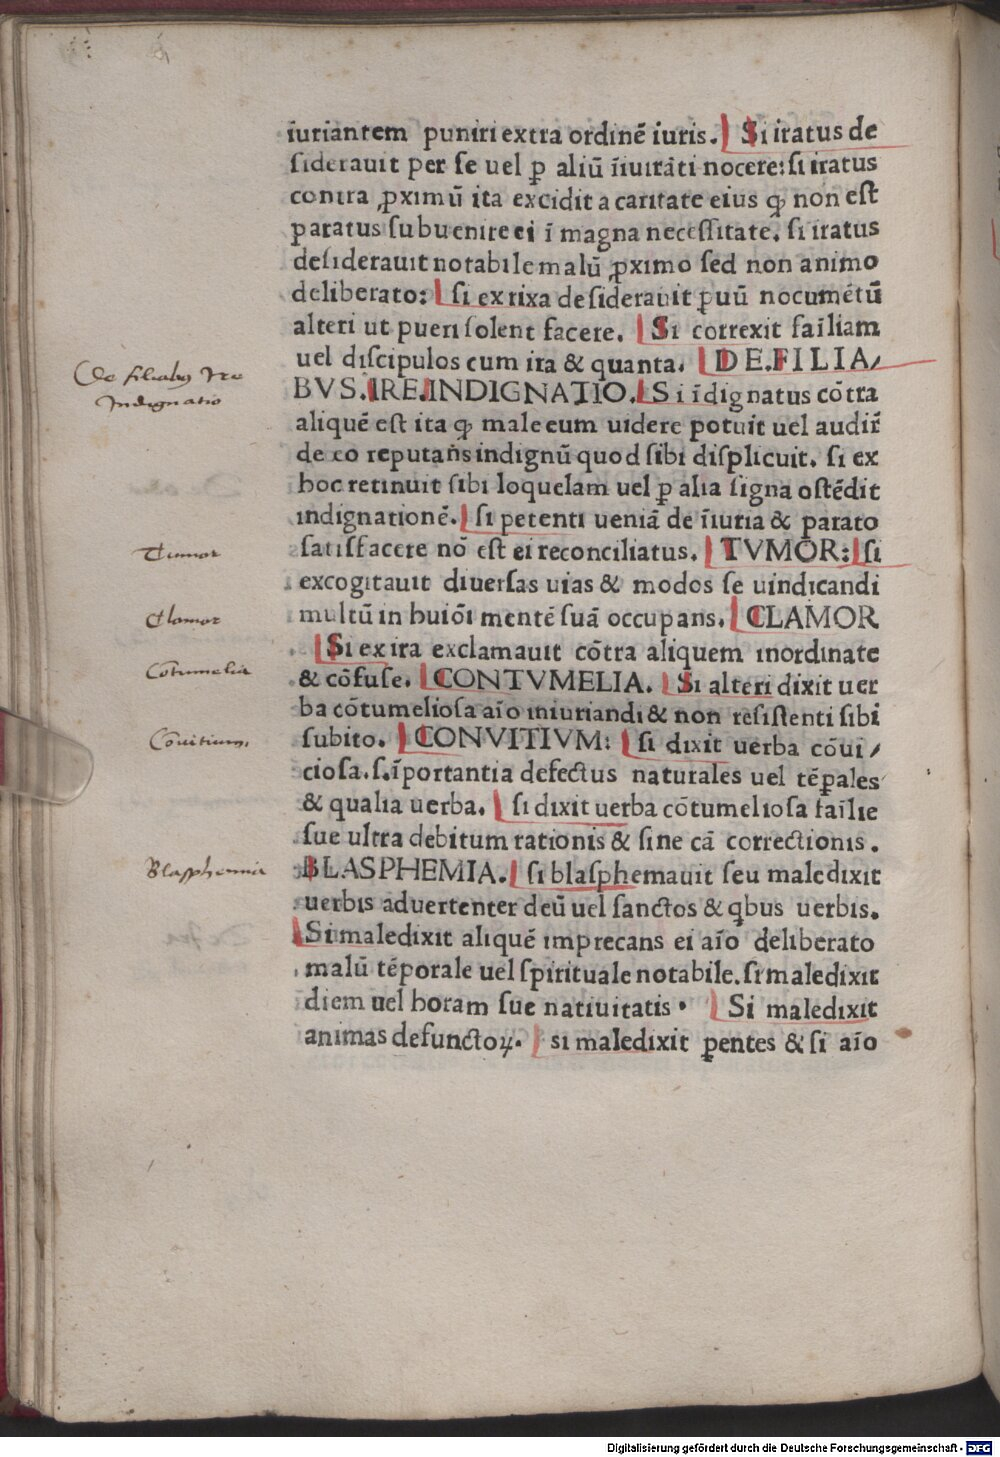 iuriantem puniri extra ordinē iuris. Si iratus de
siderauit per se uel ꝑ aliū īiuriāti nocere: si iratus
contra ꝓximū ita excidit a caritate eius ꝙ non est
paratus subuenire ei ī magna necessitate. si iratus
desiderauit notabile malū ꝓximo sed non animo
deliberato: si ex rixa desiderauit ꝑuū nocumētū
alteri ut pueri solent facere. Si correxit fal̄iam
uel discipulos cum ira & quanta. DE.FILIA/
De filiabꝫ Ire
BVS.IRE.INDIGNATIO. Si īdignatus cōtra
Indignatio
aliquē est ita ꝙ male eum uidere potuit uel audir̄
de eo reputan̄s indignū quod sibi displicuit. si ex
hoc retinuit sibi loquelam uel ꝑ alia signa ostēdit
indignationē. si petenti ueniā de īiuria & parato
Tumor
satisfacere nō est ei reconciliatus. TVMOR: si
excogitauit diuersas uias & modos se uindicandi
Clamor
multū in huiōi mentē suā occupans. CLAMOR
Si ex ira exclamauit cōtra aliquem inordinate
Cōtumelia
& cōfuse. CONTVMELIA. Si alteri dixit uer
ba cōtumeliosa aīo iniuriandi & non resistenti sibi
Cōuitium
subito. CONVITIVM: si dixit uerba cōui/
ciosa.s.īportantia defectus naturales uel tēꝑales
& qualia uerba. si dixit uerba cōtumeliosa fal̄ie
sue ultra debitum rationis & sine cā correctionis.
Blasphemia
BLASPHEMIA. si blasphemauit seu maledixit
uerbis aduertenter deū uel sanctos & qbus uerbis.
Si maledixit aliquē imprecans ei aīo deliberato
malū tēporale uel spirituale notabile. si maledixit
diem uel horam sue natiuitatis. Si maledixit
animas defunctoꝝ. si maledixit ꝑentes & si aīo
Digitalisierung gefördert durch die Deutsche Forschungsgemeinschaft - DFG